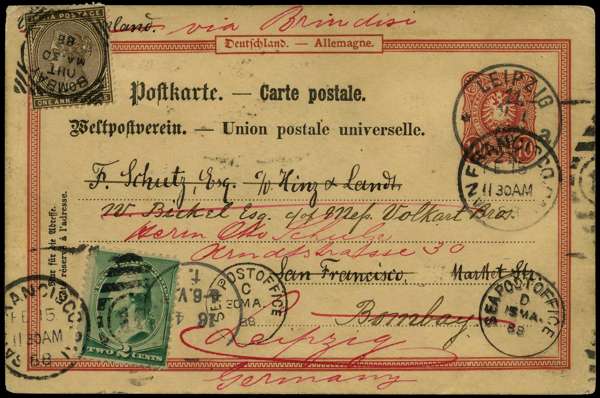 via Brindisi
INDIA POSTAGE
BOMBAY
OUT
MA.30
88
ONE ANNA
Deutschland. — Allemagne.
Postkarte. — Carte postale.
Weltpostverein. — Union postale universelle.
LEIPZIG
2
11 30AM
F. Schutz, Esq. c/o Hinz & Landt
W. Bickel Esq. c/o Mess. Volkart Bros.
Herrn Otto Schulze
Arndtstrasse 30
San Francisco, Market Str.
Bombay
Leipzig
Germany
Nur für die Adresse.
Côté réservé à l'adresse.
TWO 2 CENTS
FRANCISCO
FEB 15
11 30AM
88
SEA POST OFFICE
C
MA.
88
SEA POST OFFICE
D
15 MA.
88